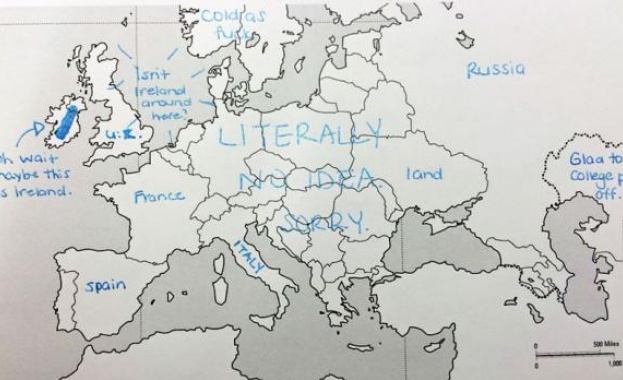 Cold as
fuck
Isn't
Ireland
around
here?
Russia
U.K.
LITERALLY
oh wait
maybe this
is Ireland.
France
NO IDEA.
land
Glad to
College
off.
SORRY.
ITALY
Spain
0
500 Miles